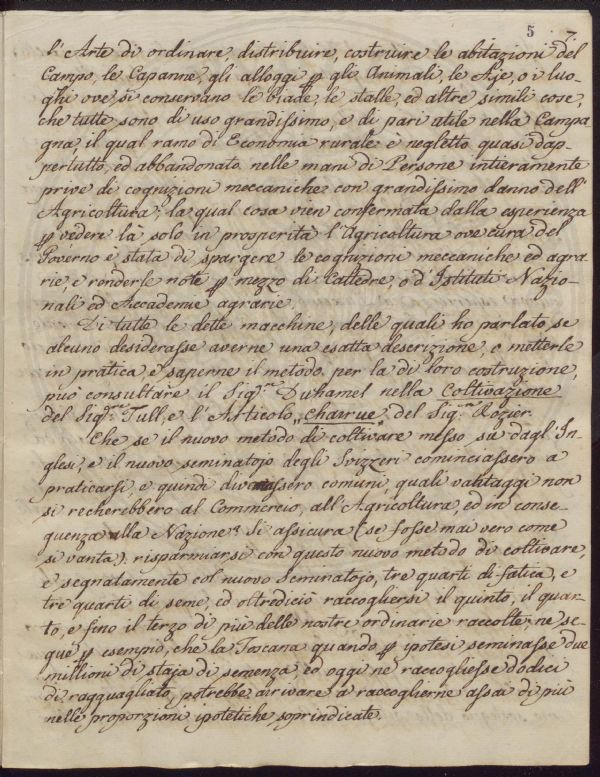 5 7.
l'Arte di ordinare, distribuire, costruire le abitazioni del
Campo, le Capanne, gli alloggi p gli Animali, le Aje, o i luo-
ghi ove si conservano le biade, le stalle, ed altre simili cose,
che tutte sono di uso grandissimo, e di pari utile nella Campa
gna, il qual ramo di Economia rurale è negletto quasi dap-
pertutto, ed abbandonato nelle mani di Persone intieramente
prive di cognizioni meccaniche con grandissimo danno dell'
Agricoltura; la qual cosa vien confermata dalla esperienza
p vedere là solo in prosperità l'Agricoltura ove cura del
Governo è stata di spargere le cognizioni meccaniche ed agra
rie, e renderle note p mezzo di Cattedre, o d'Istituti Nazio-
nali ed Accademie agrarie.
Di tutte le dette macchine, delle quali ho parlato, se
alcuno desiderasse averne una esatta descrizione, o metterle
in pratica e saperne il metodo per la di loro costruzione,
può consultare il Sig.re Duhamel nella Coltivazione
del Sig.re Tull, e l'Articolo "Charrue" del Sig.re Rozier.
Che se il nuovo metodo di coltivare messo su dagl'In-
glesi, e il nuovo seminatojo degli Svizzeri cominciassero a
praticarsi, e quindi divenissero comuni, quali vantaggi non
si recherebbero al Commercio, all'Agricoltura, ed in conse-
guenza alla Nazione? Si assicura (se fosse mai vero come
si vanta) risparmiarsi con questo nuovo metodo di coltivare,
e segnatamente col nuovo seminatojo, tre quarti di fatica, e
tre quarti di seme, ed oltrediciò raccogliersi il quinto, il quar-
to, e fino il terzo di più delle nostre ordinarie raccolte; ne se-
gue p esempio, che la Toscana quando p ipotesi seminasse due
millioni di staja di semenza, ed oggi ne raccogliesse dodici
di ragguagliato, potrebbe arrivare a raccoglierne assai di più
nelle proporzioni ipotetiche soprindicate.